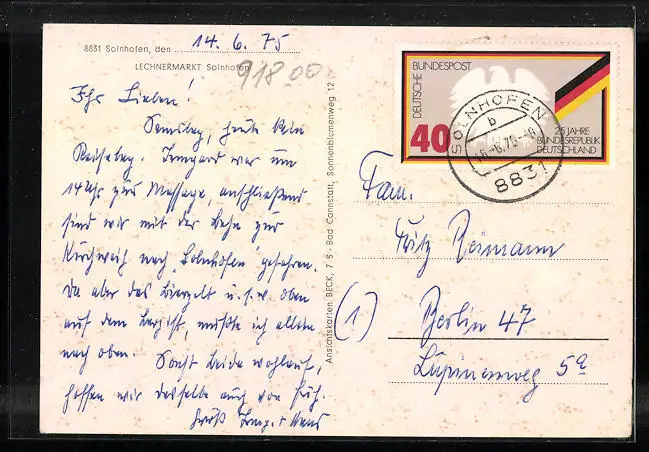 8831 Solnhofen, den 14. 6. 75
LECHNERMARKT Solnhofen
91800
Ihr Lieben!
Samstag, heute kein
Reisetag. Irmgard war um
14 Uhr zur Massage, anschließend
sind wir mit der Bahn zur
Kirchweih nach Solnhofen gefahren.
Da aber das Bierzelt u.s.w. oben
auf dem Berg ist, mußte ich allein
nach oben. Sonst beide wohlauf,
hoffen wir dasselbe auch von Euch.
Gruß Irmg. + Hans
Ansichtskarten BECK, 7 S - Bad Cannstatt, Sonnenblumenweg 12
DEUTSCHE BUNDESPOST
40
25 JAHRE
BUNDESREPUBLIK
DEUTSCHLAND
SOLNHOFEN
b
8831
Fam.
Fritz Reimann
(1) Berlin 47
Lupinenweg 5a